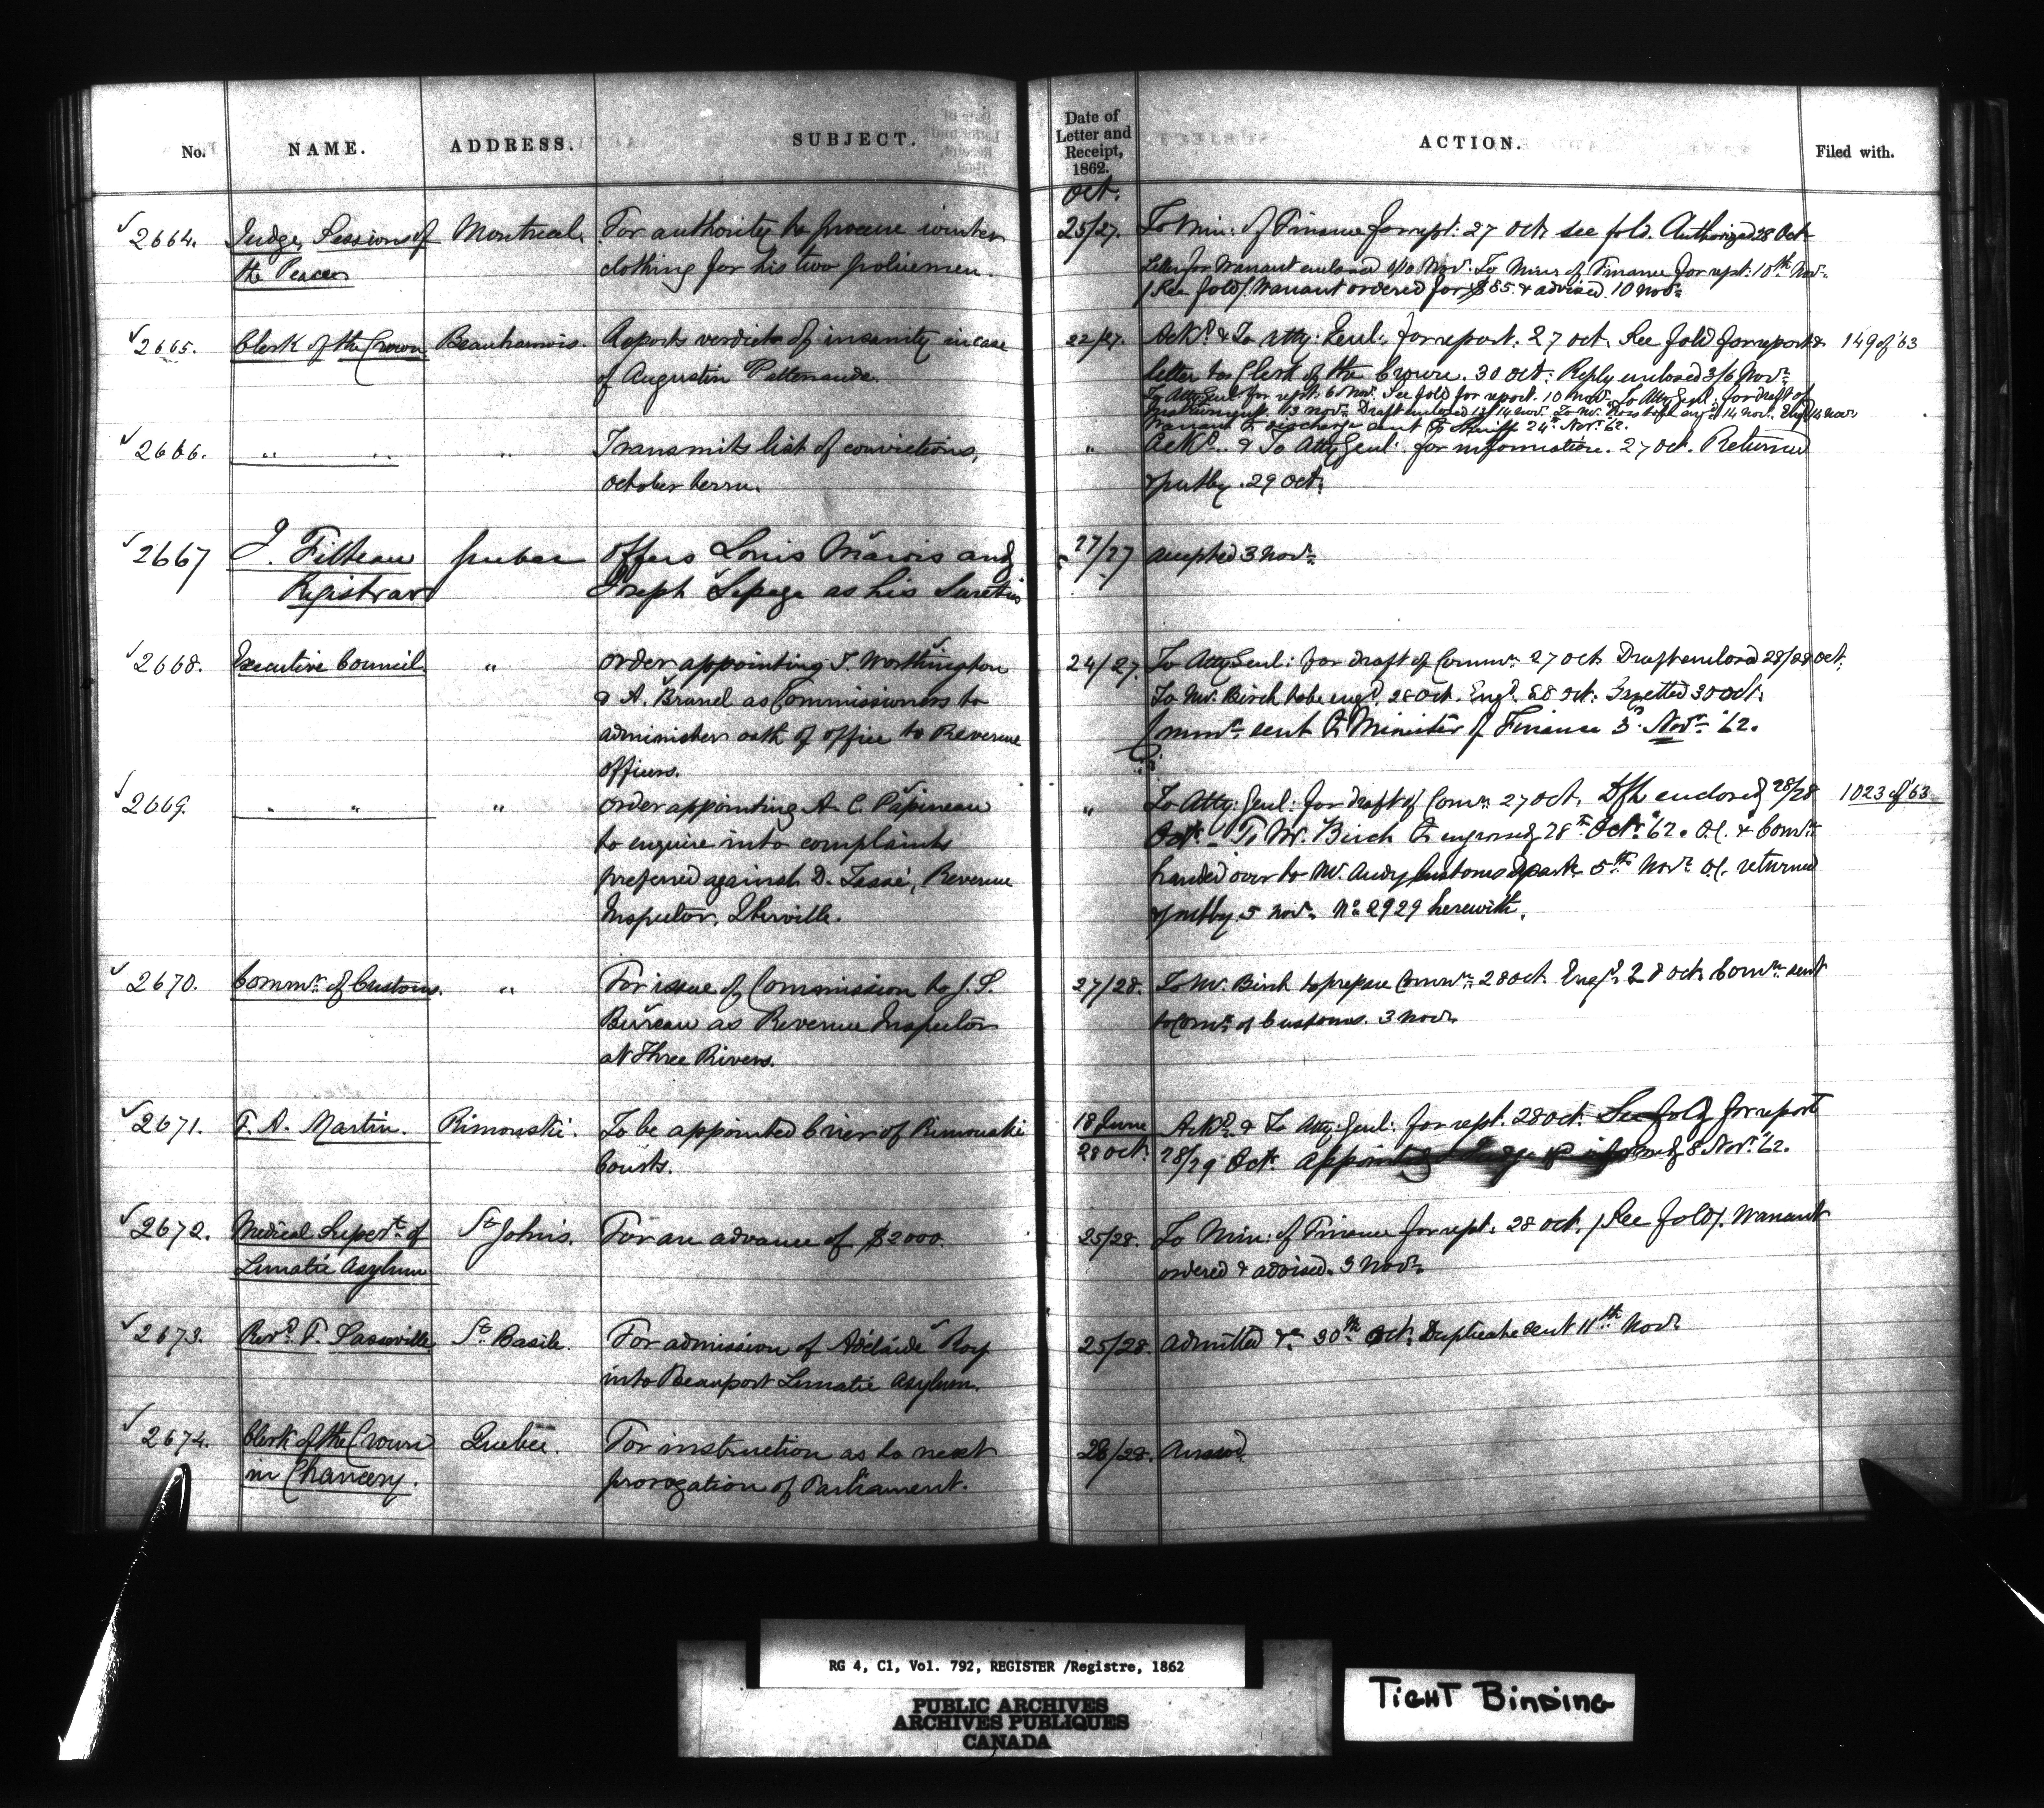 No. NAME. ADDRESS. SUBJECT. Date of Letter and Receipt, 1862. ACTION. Filed with.
Oct.
2664. Judge, Sessions of Montreal. For authority to procure winter 25/27. To Min: of Finance for rept: 27 Oct. see fold. Authorized 28 Oct.
the Peace clothing for his two policemen. Letter for Warrant enclosed 8/10 Nov: To Minr of Finance for rept: 10th Nov.
(See fold). Warrant ordered for $85. & advised. 10 Nov.
2665. Clerk of the Crown Beauharnois. Reports verdict of insanity in case 22/27. Ackd. & To Atty: Genl: for report. 27 Oct. See fold for report & 149 of '63
of Augustin Pattenaude. letter to Clerk of the Crown. 30 Oct. Reply enclosed 3/6 Nov.
To Atty Genl: for rept: 6 Nov. See fold for report. 10 Nov. To Atty Genl: for draft of
Instrument. 13 Nov. Draft enclosed 13/14 Nov. To Mr. Ross to be engd. 14 Nov. Engd. 14 Nov.
Warrant to discharge sent to Sheriff 24th Nov. 62.
2666. " " " Transmits list of convictions, " Ackd. & To Atty Genl: for information. 27 Oct. Returned
October term. & put by. 29 Oct.
2667 J. Filteau Quebec Offers Louis Marois and 27/27 Accepted 3 Nov.
Registrar Joseph Lepage as his Sureties
2668. Executive Council. " Order appointing T. Worthington 24/27. To Atty Genl: for draft of Commn. 27 Oct. Draft enclosed 28/28 Oct.
& A. Brunel as Commissioners to To Mr. Birch to be engd. 28 Oct. Engd. 28 Oct. Gazetted 30 Oct.
administer oath of office to Revenue Commn. sent to Minister of Finance 3d. Nov. '62.
officers.
2669. " " " Order appointing A. C. Papineau " To Atty: Genl: for draft of Comn. 27 Oct. Dft enclosed 28/28 1023 of '63
to enquire into complaints Oct. To Mr. Birch to engross 28th Oct. '62. O.C. & Commn.
preferred against D. Tassé, Revenue handed over to Mr. Audy Customs Depart. 5th Nov. O.C. returned
Inspector, Iberville. & put by. 5 Nov. No. 2929 herewith.
2670. Commr. of Customs. " For issue of Commission to J. S. 27/28. To Mr. Birch to prepare Commn. 28 Oct. Engd. 28 Oct. Commn. sent
Bureau as Revenue Inspector to Comr. of Customs. 3 Nov.
at Three Rivers.
2671. F. A. Martin. Rimouski. To be appointed Crier of Rimouski 18 June Ackd. & To Atty: Genl: for rept. 28 Oct. See fold for report
Courts. 28 Oct. 28/29 Oct. 8 Nov. '62.
2672. Medical Supert. of St. Johns. For an advance of $2000. 25/28. To Min: of Finance for rept. 28 Oct. (See fold). Warrant
Lunatic Asylum ordered & advised. 3 Nov.
2673. Revd. F. Lasseville St. Basile. For admission of Adélaide Roy 25/28. Admitted &c. 30th Oct. Duplicate sent 11th Nov.
into Beauport Lunatic Asylum.
2674. Clerk of the Crown Quebec. For instruction as to next 28/28. Answd.
in Chancery. prorogation of Parliament.
RG 4, C1, Vol. 792, REGISTER /Registre, 1862
PUBLIC ARCHIVES
ARCHIVES PUBLIQUES
CANADA
TIGHT BINDING